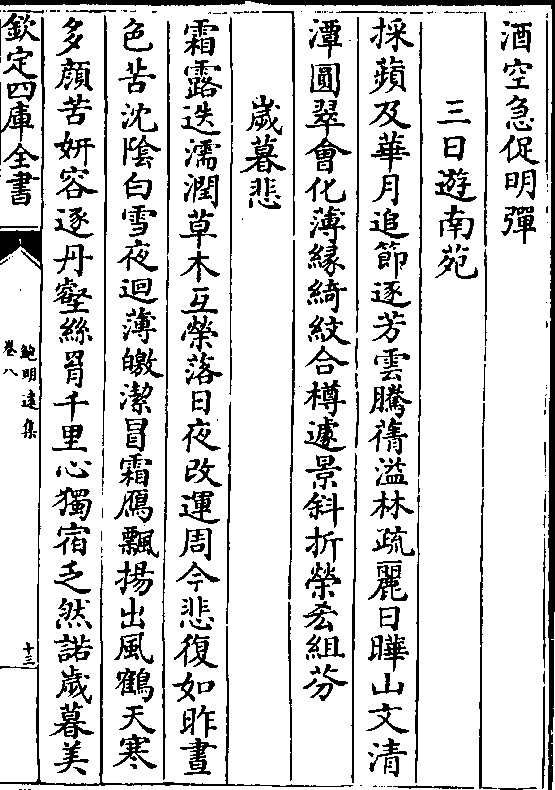 酒空急促明彈
三日遊南苑
採蘋及華月追節逐芳雲騰蒨溢林疏麗日曄山文清
潭圓翠會化薄緣綺紋合樽遽景斜折榮𠫤組芬
歲暮悲
霜露迭濡潤草木互榮落日夜改運周今悲復如昨晝
色苦沈陰白雪夜迴薄皦潔冒霜鴈飄揚出風鶴天寒
多顏苦妍容逐丹壑絲罥千里心獨宿乏然諾歲暮美
欽定四庫全書
鮑明遠集
卷八
十三